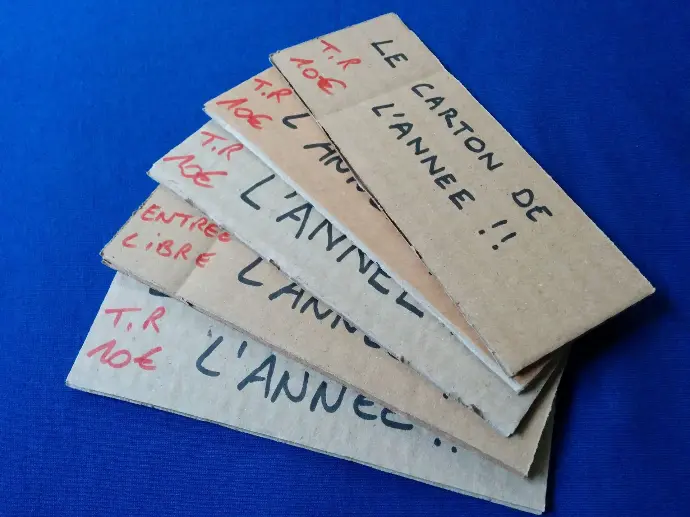 T.R
10€
LE CARTON DE
L'ANNEE !!
T.R
10€
L'ANNE
T.R
10€
L'ANNEE
ENTREE
LIBRE
L'ANNE
T.R
10€
L'ANNEE !!